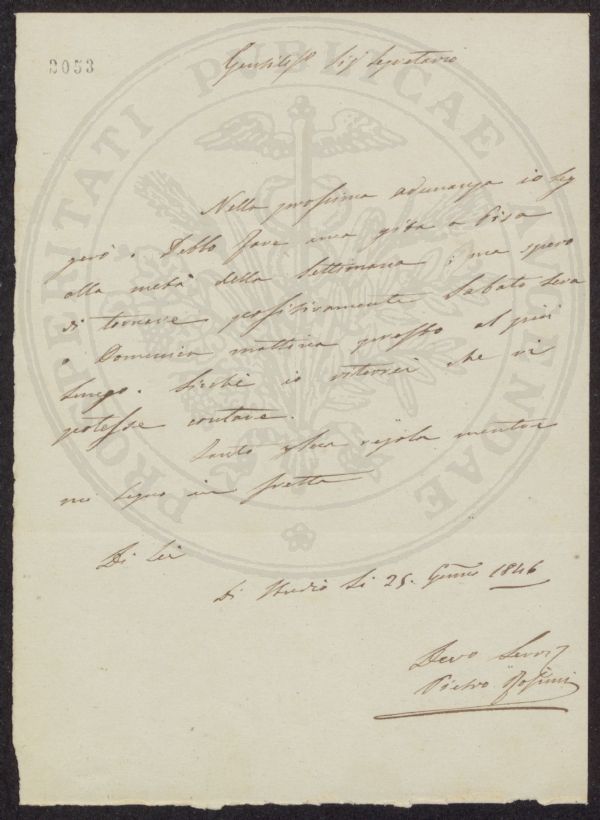 2053
Gentilis.º Sig.r Segretario
Nella prossima adunanza io leg
gerò. Debbo fare una gita a Pisa
alla metà della Settimana; ma spero
di tornare positivamente Sabato sera
o Domenica mattina presto al più
lungo. Sicchè io riterrei che vi
potesse contare.
Tanto per sua regola mentre
mi segno in fretta
Di Lei
Di Studio Li 25. Genn.º 1846
Devo Serv.r
Pietro
PROSPERITATI PUBLICAE AUGENDAE